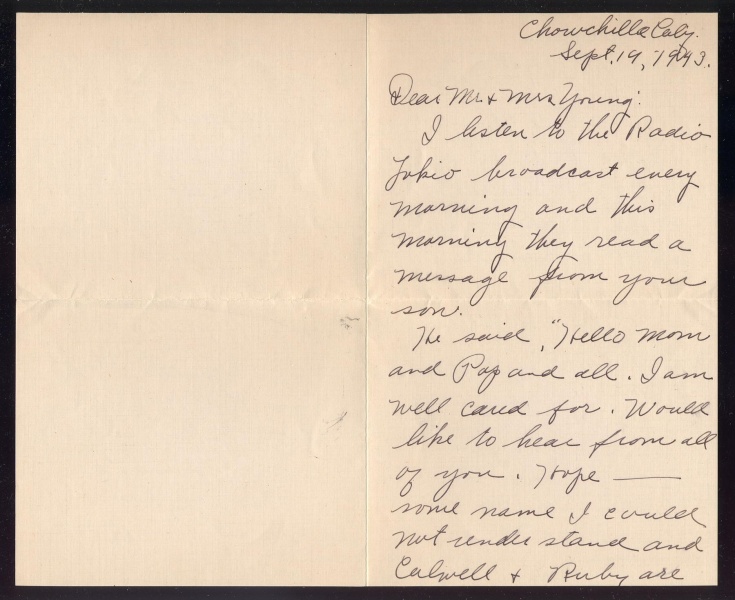 Chowchilla Calif.
Sept. 19, 1943.
Dear Mr. & Mrs. Young:
I listen to the Radio
Tokio broadcast every
morning and this
morning they read a
message from your
son.
He said, "Hello Mom
and Pop and all. I am
well cared for. Would
like to hear from all
of you. Hope ——
some name I could
not understand and
Calwell & Ruby are